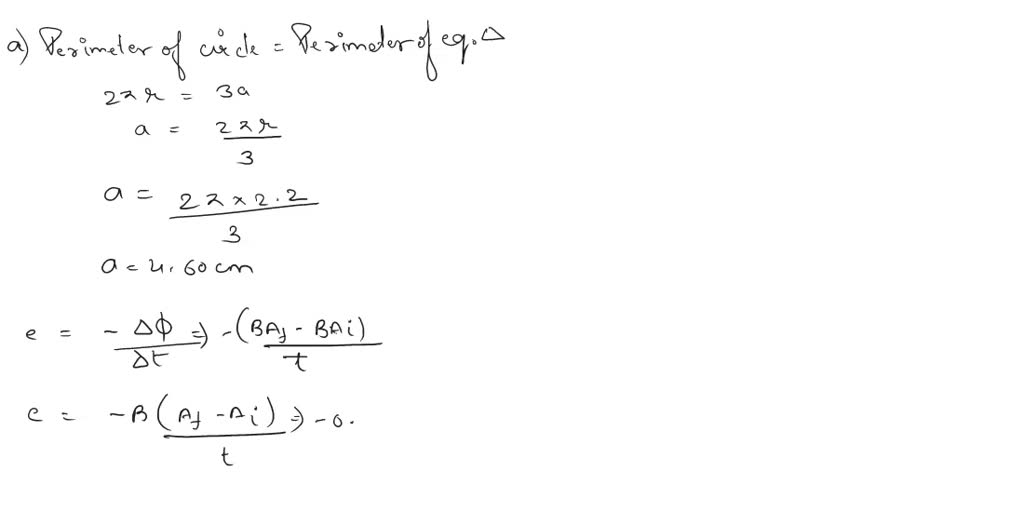 a) Perimeter of circle = Perimeter of eq. Δ
2πr = 3a
a = 2πr / 3
a = 2π × 2.2 / 3
a = 4.60 cm
e = -Δϕ / Δt ⇒ -(BAf - BAi) / t
e = -B(Af - Ai) / t ⇒ -0.